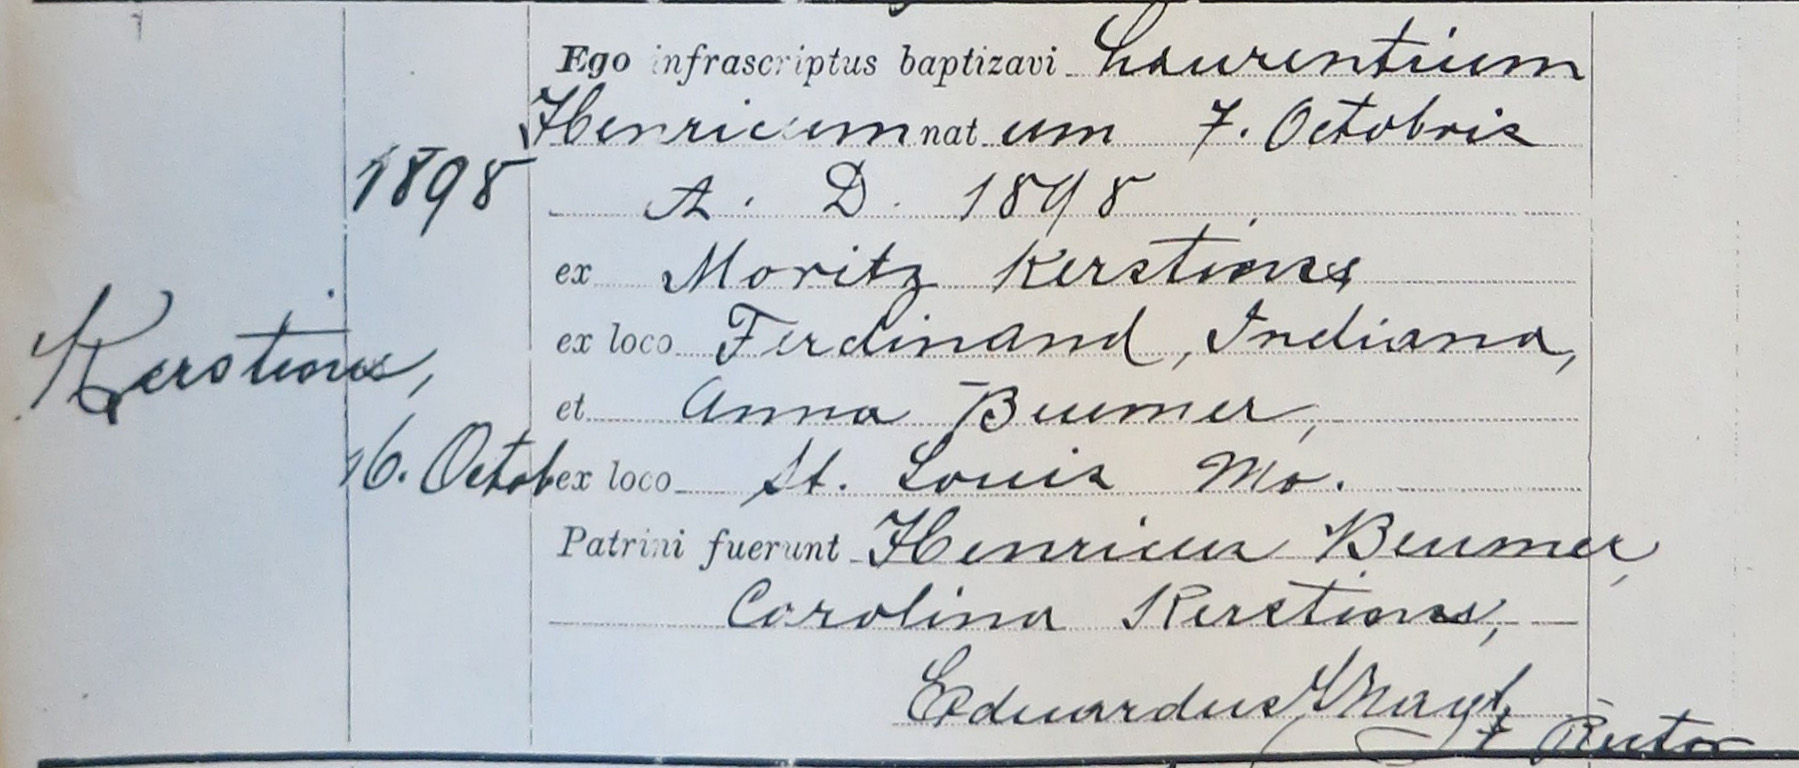 Ego infrascriptus baptizavi Laurentium
Henricum natum 7. Octobris
1898
A. D. 1898
ex Moritz Kerstiens
ex loco Ferdinand, Indiana,
Kerstiens,
et Anna Beumer,
16. Octob ex loco St. Louis Mo.
Patrini fuerunt Henricus Beumer,
Carolina Kerstiens,
Eduardus
Rector